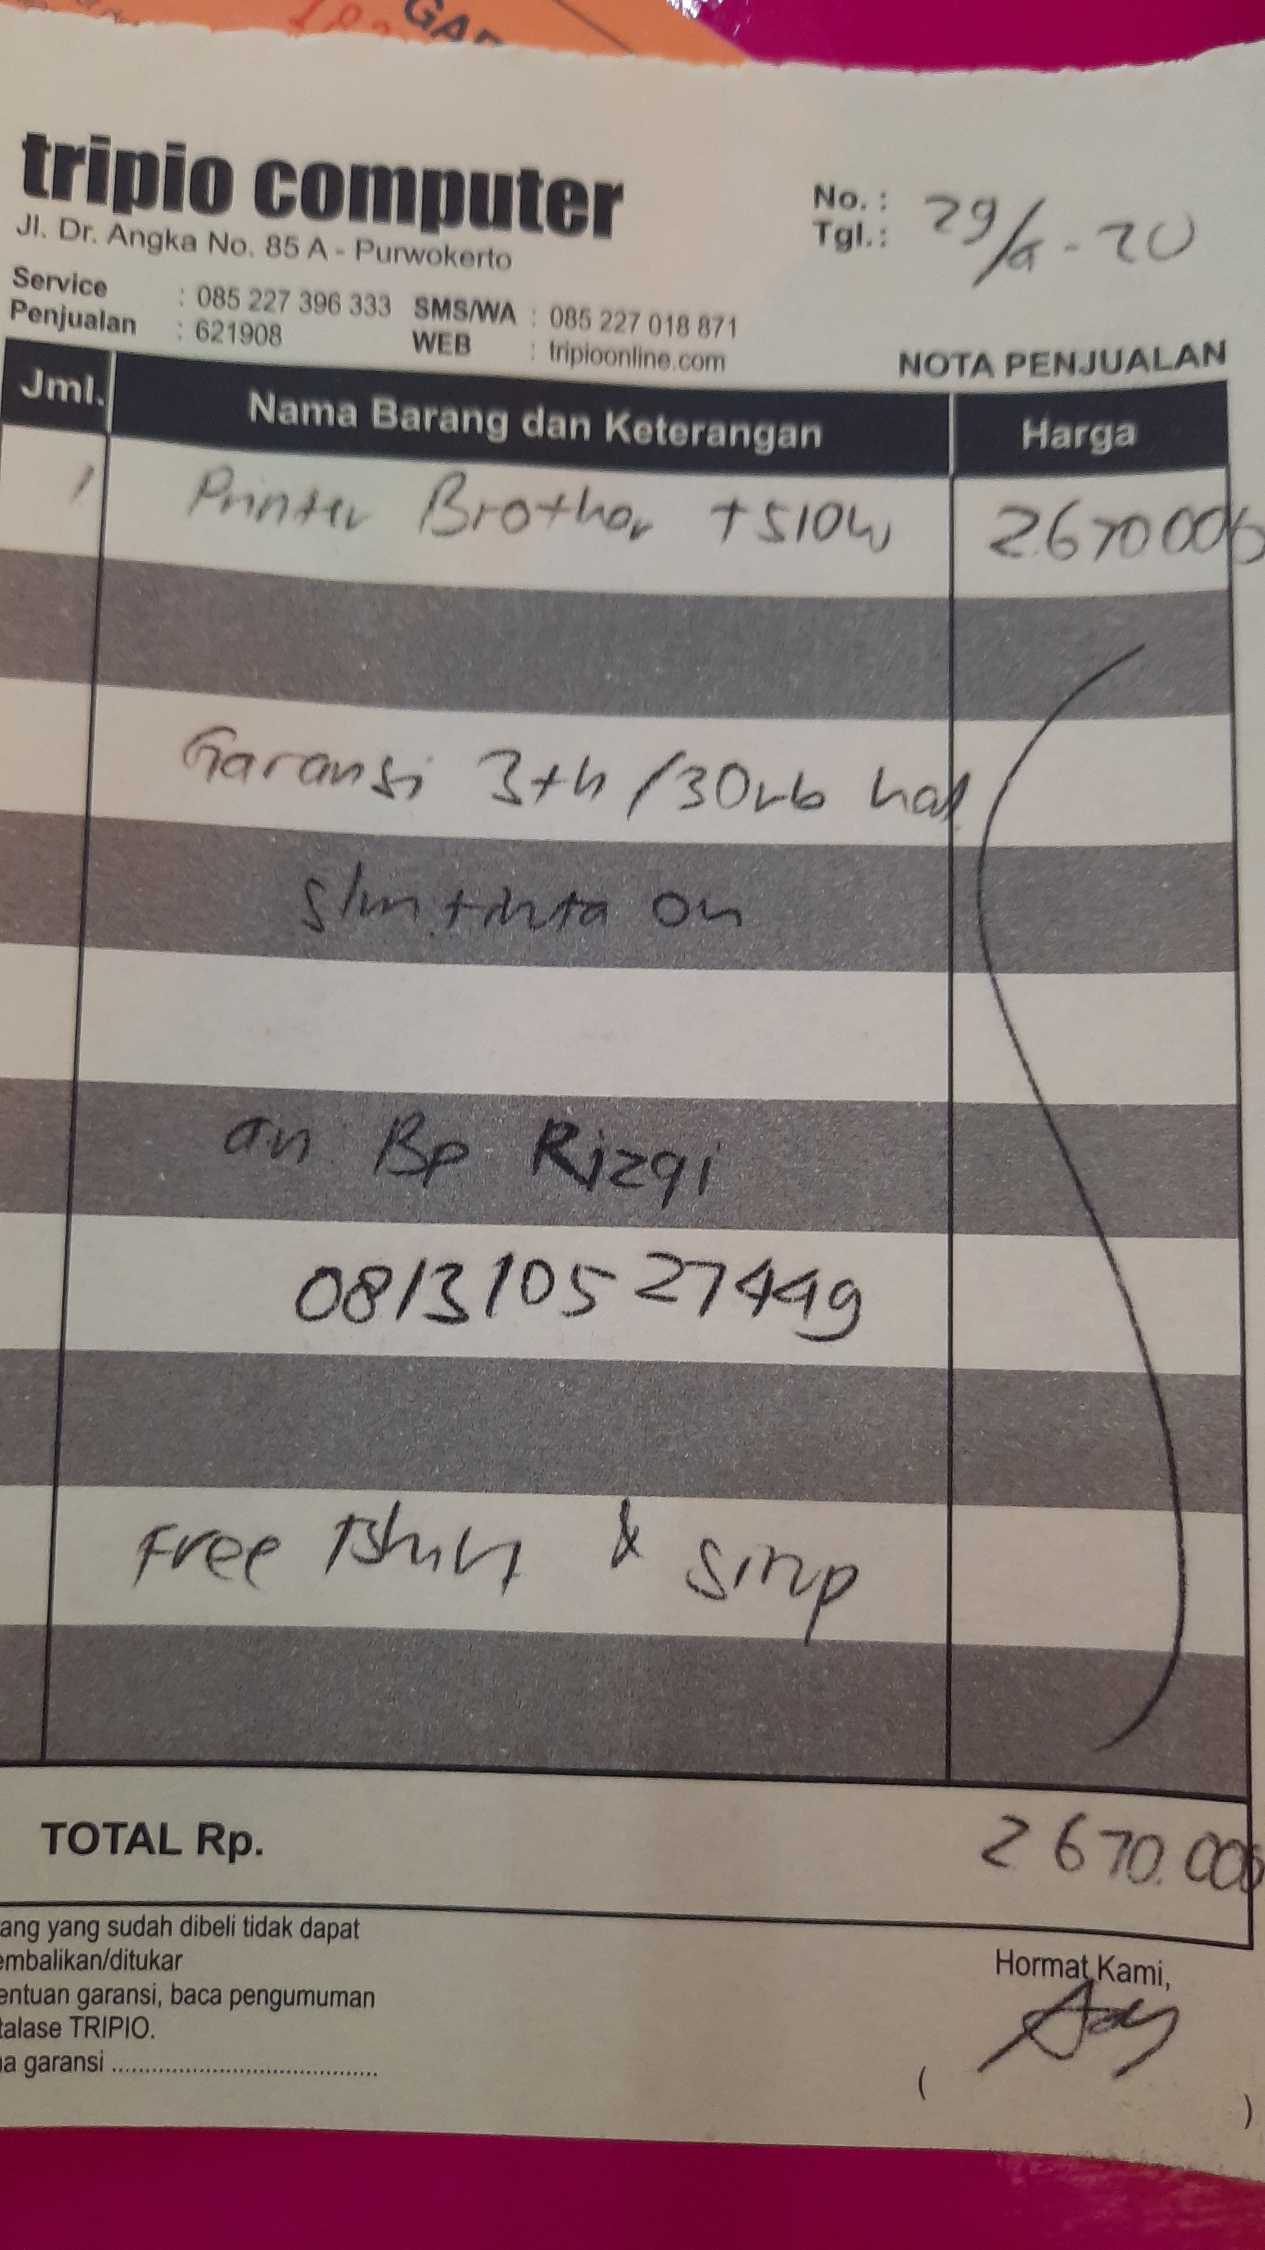 GAR
tripio computer
Jl. Dr. Angka No. 85 A - Purwokerto
No. :
Tgl.: 29/ - 20
Service : 085 227 396 333 SMS/WA : 085 227 018 871
Penjualan : 621908 WEB : tripioonline.com
NOTA PENJUALAN
Jml. Nama Barang dan Keterangan Harga
1 Printer Brother T510W 2.670 000
Garansi 3 th / 30rb hal
tinta on
an Bp Rizqi
081310527449
Free Tshirt & sirup
TOTAL Rp. 2 670.000
ang yang sudah dibeli tidak dapat
embalikan/ditukar
entuan garansi, baca pengumuman
talase TRIPIO.
a garansi ........................................
Hormat Kami,
( )